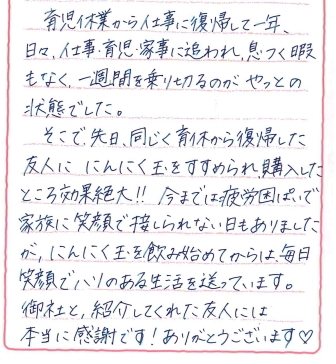 育児休業から仕事に復帰して一年、
日々、仕事・育児・家事に追われ、息つく暇
もなく、一週間を乗り切るのがやっとの
状態でした。
そこで、先日、同じく育休から復帰した
友人に にんにく玉をすすめられ購入した
ところ効果絶大!! 今までは疲労困ぱいで
家族に笑顔で接しられない日もありました
が、にんにく玉を飲み始めてからは、毎日
笑顔でハリのある生活を送っています。
御社と、紹介してくれた友人には
本当に感謝です!ありがとうございます♡